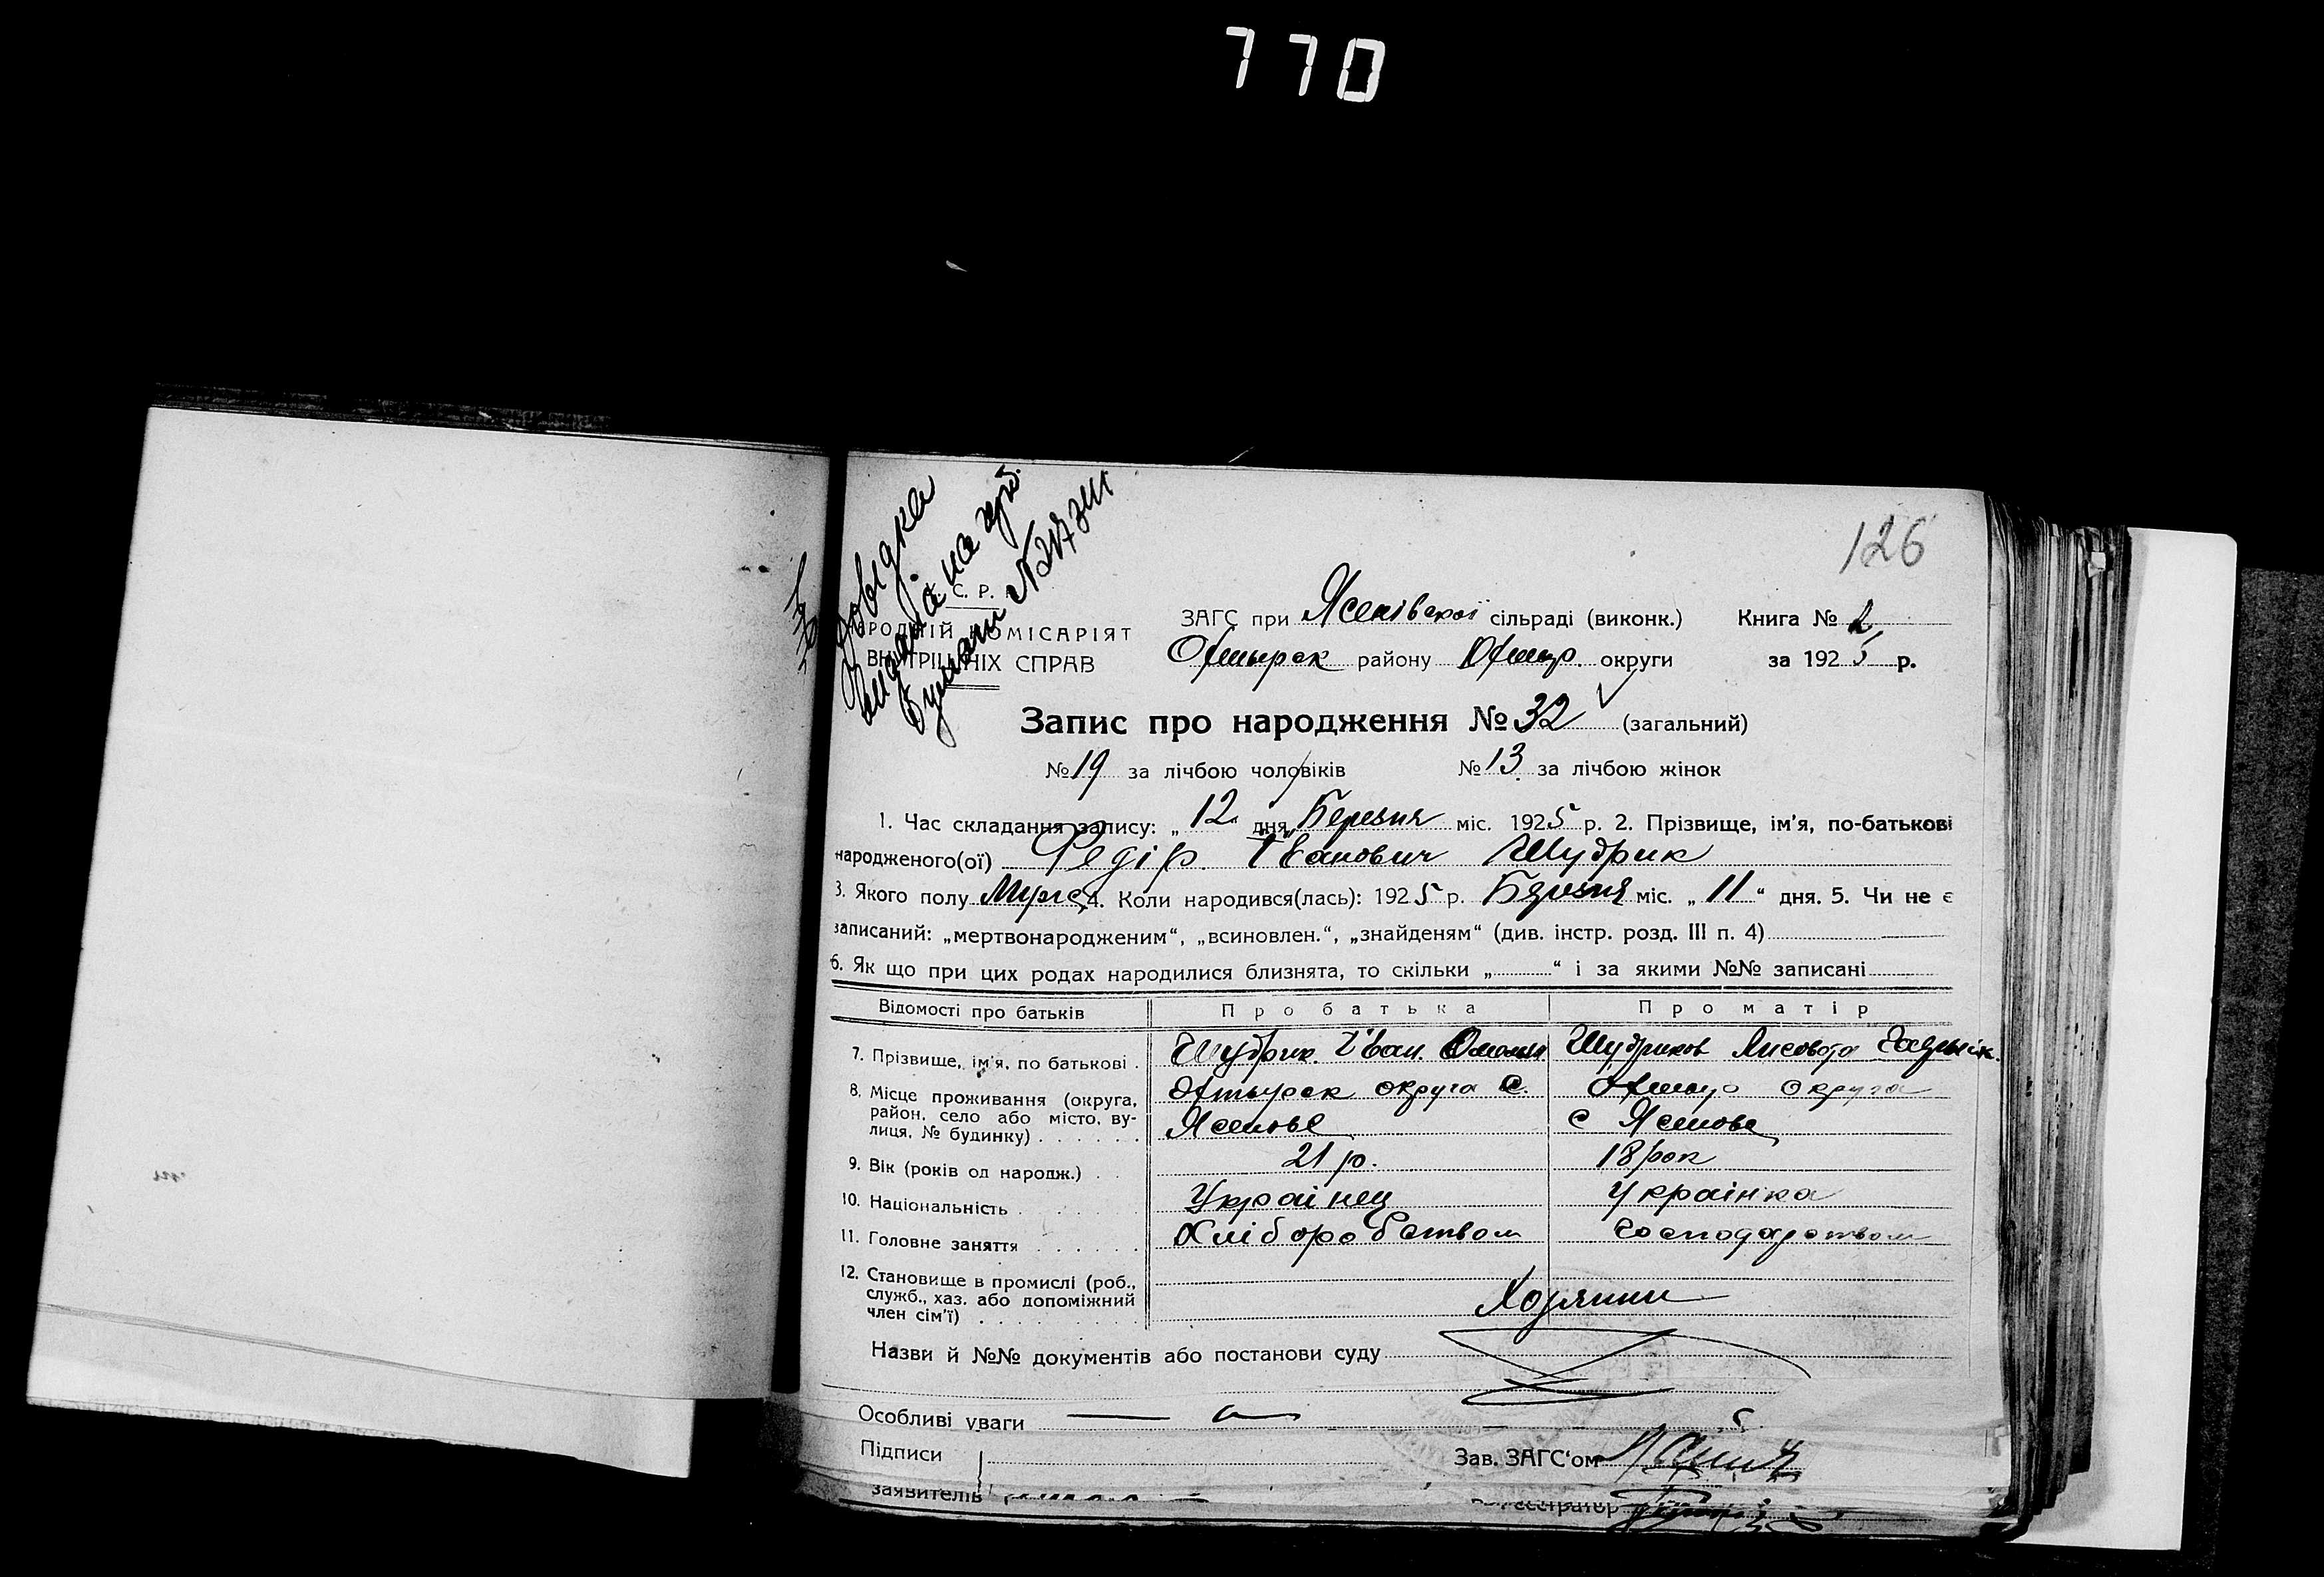 770
126
Довідка
видана на
С. Р. Р.
НАРОДНІЙ КОМІСАРІЯТ
ВНУТРІШНІХ СПРАВ
ЗАГС при Ясенівской сільраді (виконк.) Книга № 2
Охтырск району Охтир. округи за 1925 р.
Запис про народження № 32 (загальний)
№ 19 за лічбою чоловіків № 13 за лічбою жінок
1. Час складання запису: „12" дня „Березня міс. 1925 р. 2. Прізвище, ім'я, по-батькові
народженого(ої) Федір Іванович Шудрик
3. Якого полу Муж. 4. Коли народився(лась): 1925 р. Березня міс. „11" дня. 5. Чи не є
записаний: „мертвонародженим", „всиновлен.", „знайденям" (див. інстр. розд. III п. 4)
6. Як що при цих родах народилися близнята, то скільки „ " і за якими №№ записані
Відомості про батьків Про батька Про матір
7. Прізвище, ім'я, по батькові Шудрик Іван Шудриков
8. Місце проживання (округа, район, село або місто, вулиця, № будинку) Охтырск округа с. Ясенове Охтир округа с Ясенове
9. Вік (років од народж.) 21 р. 18 рок
10. Національність Українец Українка
11. Головне заняття Хліборобством Господарством
12. Становище в промислі (роб., служб., хаз. або допоміжний член сім'ї)
Назви й №№ документів або постанови суду
Особливі уваги
Підписи Зав. ЗАГС'ом
заявителів Реєстратор